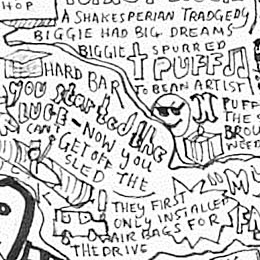 HOP
A SHAKESPERIAN TRADGEDY
BIGGIE HAD BIG DREAMS
BIGGIE SPURRED
PUFF
TO BEAN ARTIST
HARD BAR
YOU started the
LUGE - NOW YOU
CAN'T GET OFF
SLED THE
PUFF
THE S
BROU
WEED
THEY FIRST
ONLY INSTALLED
AIR BAGS FOR
THE DRIVE
MY